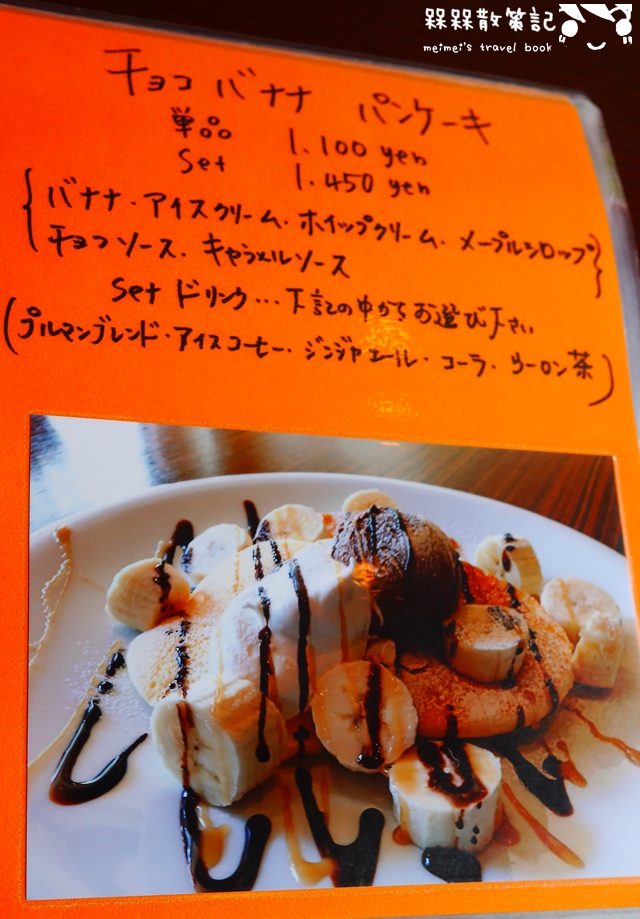 槑槑散策記
meimei's travel book
チョコ バナナ パンケーキ
単品 1.100 yen
Set 1.450 yen
{バナナ・アイスクリーム・ホイップクリーム・メープルシロップ
チョコソース・キャラメルソース}
Set ドリンク…下記の中からお選び下さい
(プルマンブレンド・アイスコーヒー・ジンジャエール・コーラ・ウーロン茶)